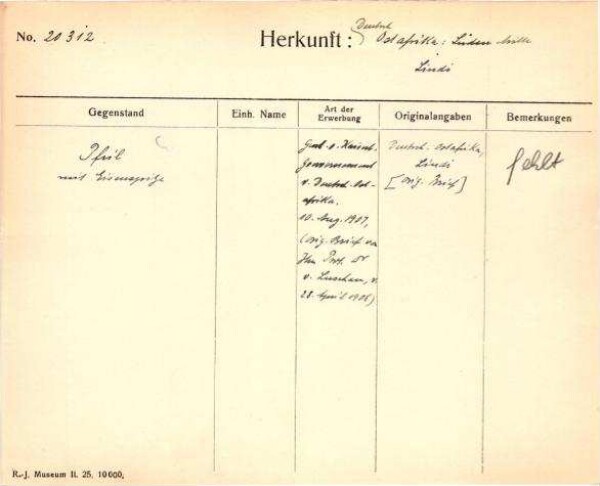 No. 20312
Herkunft: Deutsch Ostafrika: Süden
Lindi
Gegenstand
Einh. Name
Art der Erwerbung
Originalangaben
Bemerkungen
Pfeil
mit Eisenspitze
Gesch. v. Kaiserl.
Gouvernement
v. Deutsch. Ost-
afrika.
10. Aug. 1907,
(Orig. Brief von
Hrn Prof. Dr
v. Luschan, v.
28. April 1906)
Deutsch. Ostafrika,
Lindi
[Orig. Brief]
fehlt
R.-J. Museum II. 25. 10000.